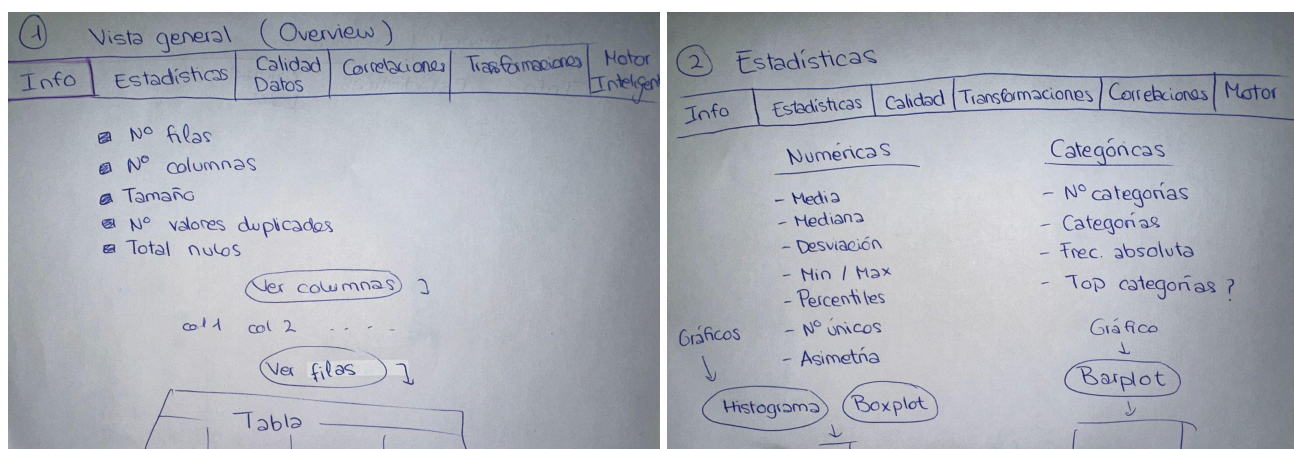 1 Vista general (Overview)
Info Estadísticas Calidad Datos Correlaciones Trasformaciones Motor Inteligen
Nº filas
Nº columnas
Tamaño
Nº valores duplicados
Total nulos
Ver columnas
col 1 col 2 .....
Ver filas
Tabla
2 Estadísticas
Info Estadísticas Calidad Transformaciones Correlaciones Motor
Numéricas
- Media
- Mediana
- Desviación
- Min / Max
- Percentiles
- Nº únicos
- Asimetría
Gráficos
Histograma Boxplot
Categóricas
- Nº categorías
- Categorías
- Frec. absoluta
- Top categorías ?
Gráfico
Barplot